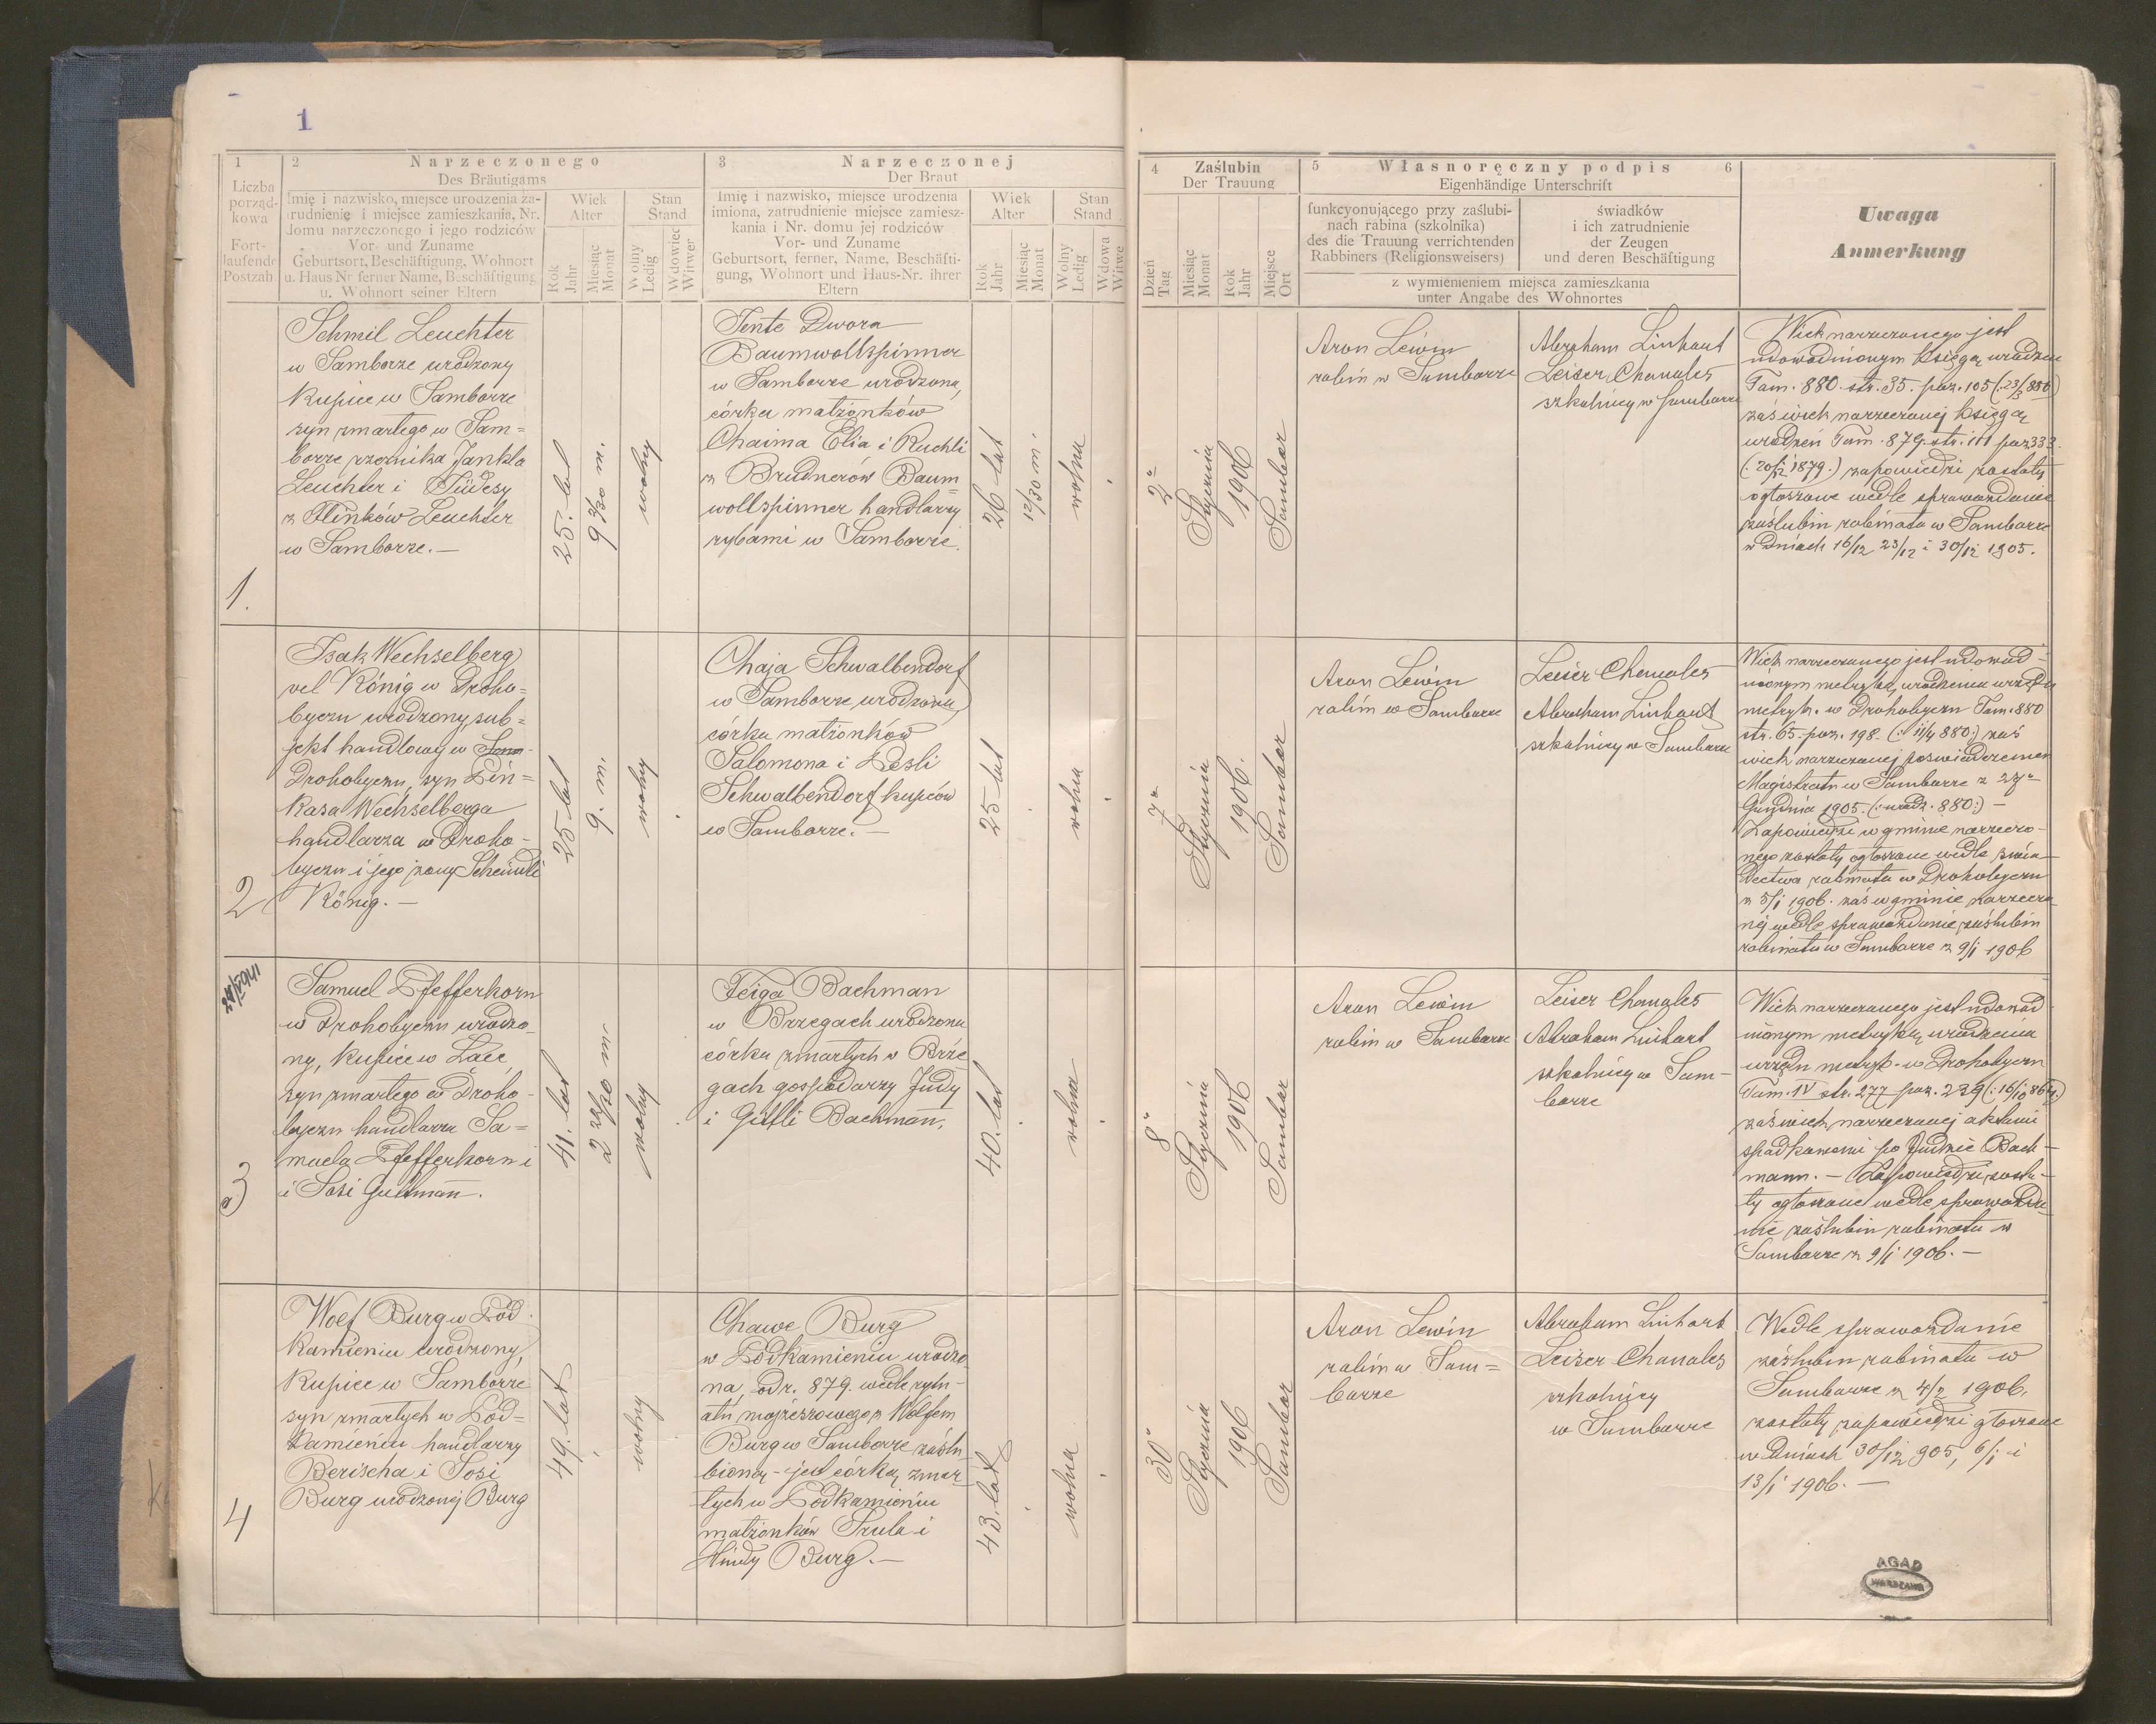 1
1
2 Narzeczonego
Des Bräutigams
3 Narzeczonej
Der Braut
4 Zaślubin
Der Trauung
5 Własnoręczny podpis 6
Eigenhändige Unterschrift
Uwaga
Anmerkung
Liczba
porząd-
kowa
Fort-
laufende
Postzah
Imię i nazwisko, miejsce urodzenia za-
rudnienie i miejsce zamieszkania, Nr.
domu narzeczonego i jego rodziców
Vor- und Zuname
Geburtsort, Beschäftigung, Wohnort
u. Haus Nr ferner Name, Beschäftigung
u. Wohnort seiner Eltern
Wiek
Alter
Rok
Jahr
Miesiąc
Monat
Stan
Stand
Wolny
Ledig
Wdowiec
Witwer
Imię i nazwisko, miejsce urodzenia
imiona, zatrudnienie miejsce zamiesz-
kania i Nr. domu jej rodziców
Vor- und Zuname
Geburtsort, ferner, Name, Beschäfti-
gung, Wohnort und Haus-Nr. ihrer
Eltern
Wiek
Alter
Rok
Jahr
Miesiąc
Monat
Stan
Stand
Wolny
Ledig
Wdowa
Witwe
Dzień
Tag
Miesiąc
Monat
Rok
Jahr
Miejsce
Ort
funkcyonującego przy zaślubi-
nach rabina (szkolnika)
des die Trauung verrichtenden
Rabbiners (Religionsweisers)
świadków
i ich zatrudnienie
der Zeugen
und deren Beschäftigung
z wymienieniem miejsca zamieszkania
unter Angabe des Wohnortes
1.
Schmil Leuchter
w Samborze urodzony
kupiec w Samborze
syn zmarłego w Sam=
borze rzeźnika Jankla
Leuchter i Südesy
z Flinków Leuchter
w Samborze.—
25. lat
9 2/30 m.
wolny
Tente Dwora
Baumwollspinner
w Samborze urodzona,
córka małżonków
Chaima Elia i Ruchli
z Brudnerów Baum=
wollspinner handlarzy
rybami w Samborze.
26 lat
12/30 m.
wolna
2"
Stycznia
1906
Sambor
Aron Lewin
rabin w Samborze
Abraham Linhart
Leiser Chanales
szkolnicy w Samborze
Wiek narzeczonego jest
udowodnionym księgą urodzeń
Tom. 880. str. 35. poz. 105 (:23/3 880)
zaś wiek narzeczonej księgą
urodzeń Tom. 879. str. 111 poz 333.
(:20/12 1879.) zapowiedzi zostały
ogłoszone wedle sprawozdania
zaślubin rabinatu w Samborze
w dniach 16/12 23/12 i 30/12 1905.
2
Isak Wechselberg
vel König w Droho=
byczu urodzony, sub=
jekt handlowy w
Drohobyczu, syn Pin=
kasa Wechselberga
handlarza w Droho-
byczu i jego żony Scheindli
König.—
25 lat
9. m.
wolny
Chaja Schwalbendorf
w Samborze urodzona,
córka małżonków
Salomona i Pesli
Schwalbendorf kupców
w Samborze.—
25 lat
wolna
7"
Stycznia
1906.
Sambor
Aron Lewin
rabin w Samborze
Leiser Chanales
Abraham Linhart
szkolnicy w Samborze
Wiek narzeczonego jest udowod-
nionym metryką urodzenia urzędu
metryk. w Drohobyczu Tom. 880
str. 65. poz. 198. (:11/4 880:) zaś
wiek narzeczonej poświadczeniem
Magistratu w Samborze z 27"
Grudnia 1905. (:urodz. 880:)—
Zapowiedzi w gminie narzeczo-
nego zostały ogłoszone wedle świa-
dectwa rabinatu w Drohobyczu
z 5/1 1906. zaś w gminie narzeczo-
nej wedle sprawozdania zaślubin
rabinatu w Samborze z 9/1 1906
3
Samuel Pfefferkorn
w Drohobyczu urodzo-
ny, kupiec w Łące,
syn zmarłego w Droho-
byczu handlarza Sa=
muela Pfefferkorn i
i Sosi Guttmann.
41. lat
2 22/30 m.
wolny
Feiga Bachman
w Brzegach urodzona
córka zmarłych w Brze
gach gospodarzy Judy
i Gittli Bachmann.
40. lat
wolna
8"
Stycznia
1906
Sambor
Aron Lewin
rabin w Samborze
Leiser Chanales
Abraham Linhart
szkolnicy w Sam-
borze
Wiek narzeczonego jest udowod
nionym metryką urodzenia
urzędu metryk. w Drohobyczu
Tom. IV str. 277 poz. 229 (:16/10 864:)
zaś wiek narzeczonej aktami
spadkowemi po Judzie Bach-
mann.— Zapowiedzi zosta-
ły ogłoszone wedle sprawozda-
nie zaślubin rabinatu w
Samborze z 9/1 1906.—
4
Wolf Burg w Pod-
kamieniu urodzony,
kupiec w Samborze
syn zmarłych w Pod=
kamieniu handlarzy
Berischa i Sosi
Burg urodzonej Burg
49. lat
wolny
Chawe Burg
w Podkamieniu urodzo
na, od r. 879. wedle rytu-
ału mojżeszowego z Wolfem
Burg w Samborze zaślu
bioną - jest córką zmar
łych w Podkamieniu
małżonków Srula i
Hindy Burg.—
43. lat
wolna
30"
Stycznia
1906
Sambor
Aron Lewin
rabin w Sam=
borze
Abraham Linhart
Leizer Chanales
szkolnicy
w Samborze
Wedle sprawozdanie
zaślubin rabinatu w
Samborze z 4/2 1906.
zostały zapowiedzi głoszone
w dniach 30/12 905, 6/1 i
13/1 1906.—
AGAD
WARSZAWA